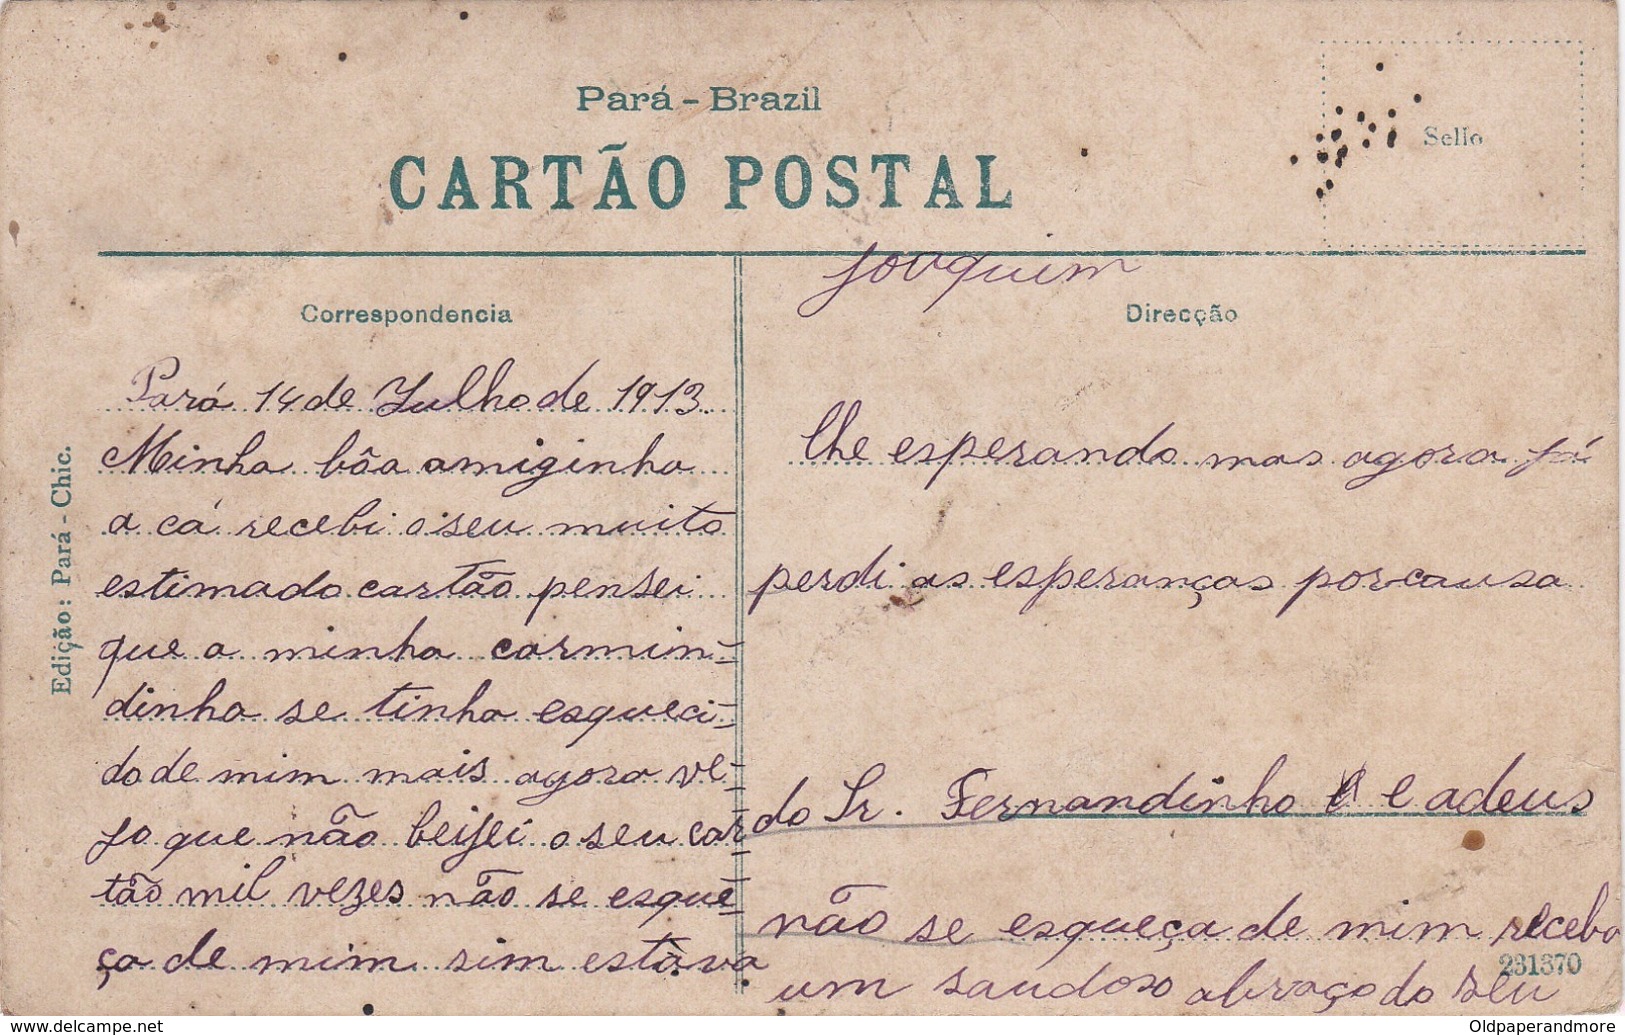 Pará - Brazil
CARTÃO POSTAL
Sello
Correspondencia
Direcção
Edição: Pará - Chic.
Pará 14 de Julho de 1913.
Minha bôa amiginha
a cá recebi o seu muito
estimado cartão pensei
que a minha carmin=
dinha se tinha esqueci=
do de mim mais agora ve=
jo que não beijei o seu car=
tão mil vezes não se esque=
ça de mim sim estava
lhe esperando mas agora já
perdi as esperanças por causa
do Sr. Fernandinho e adeus
não se esqueça de mim receba
um saudoso abraço do seu
Jouquim
231370
www.delcampe.net
Oldpaperandmore